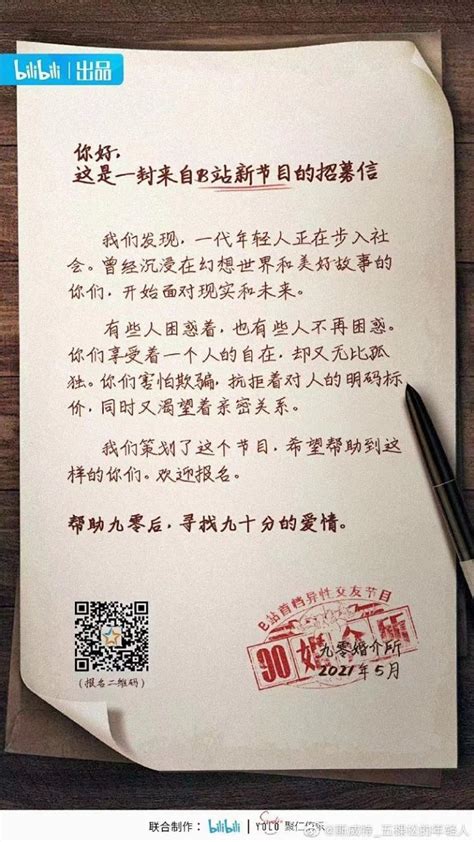 bilibili | 出品
你好，
这是一封来自B站新节目的招募信
我们发现，一代年轻人正在步入社
会。曾经沉浸在幻想世界和美好故事的
你们，开始面对现实和未来。
有些人困惑着，也有些人不再困惑。
你们享受着一个人的自在，却又无比孤
独。你们害怕欺骗，抗拒着对人的明码标
价，同时又渴望着亲密关系。
我们策划了这个节目，希望帮助到这
样的你们。欢迎报名。
帮助九零后，寻找九十分的爱情。
B站首档异性交友节目
90婚介所
九零婚介所
2021年5月
(报名二维码)
联合制作： bilibili | YOLO 聚仁